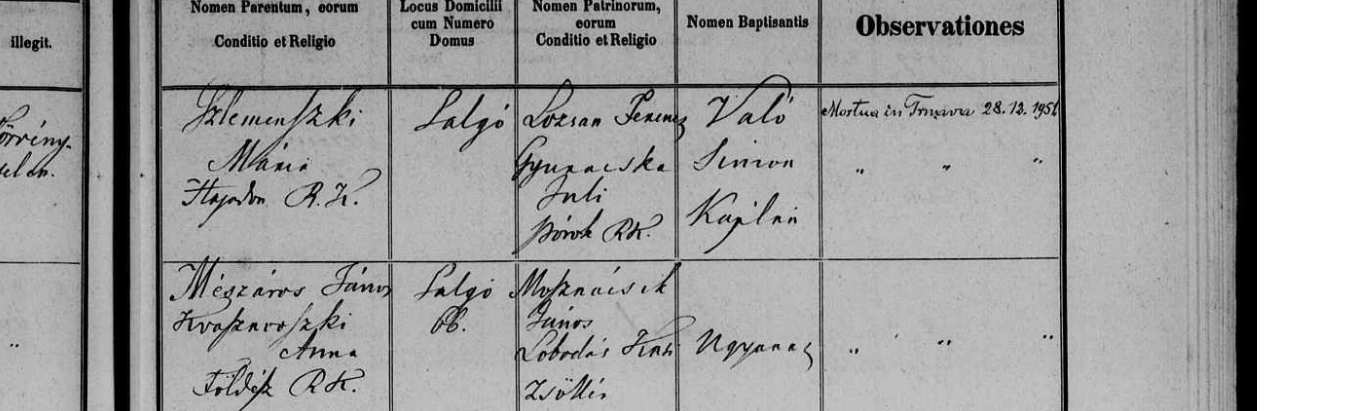 illegit.
Nomen Parentum, eorum
Conditio et Religio
Locus Domicilii
cum Numero
Domus
Nomen Patrinorum,
eorum
Conditio et Religio
Nomen Baptisantis
Observationes
Szlemenszki
Mária
Hajadon R. K.
Salgó
Lozsan Ferencz
Juli
Párok RK.
Való
Simon
Káplán
Mortua in Trnava 28. 12. 1951
" " "
Mészáros János
Kvasznovszki
Anna
Földész R K.
Salgó
66.
Mosznácsik
János
Zsöllér
Ugyanaz
" " "
"